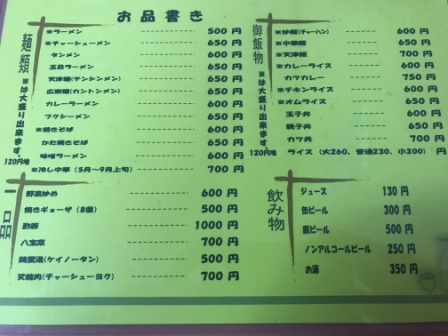 お品書き
麺類
※は大盛り出来ます。
120円増
※ラーメン 500円
※チャーシューメン 650円
タンメン 600円
五目ラーメン 650円
天津麺(テンシンメン) 650円
広東麺(カントンメン) 650円
カレーラーメン 600円
ワンタンメン 650円
※焼きそば 600円
かた焼きそば 650円
味噌ラーメン 600円
※冷し中華(5月〜9月上旬) 700円
御飯物
※は大盛り出来ます。
120円増
※炒飯(チャーハン) 600円
※中華飯 650円
※天津飯 700円
※カレーライス 600円
カツカレー 750円
※チキンライス 600円
※オムライス 650円
玉子丼 600円
親子丼 650円
カツ丼 700円
ライス(大260、普通230、小200)円
一品
野菜炒め 600円
焼きギョーザ(8個) 500円
酢豚 1000円
八宝菜 700円
鶏蛋湯(ケイノータン) 500円
叉焼肉(チャーシューヨク) 700円
飲み物
ジュース 130円
缶ビール 300円
瓶ビール 500円
ノンアルコールビール 250円
お酒 350円